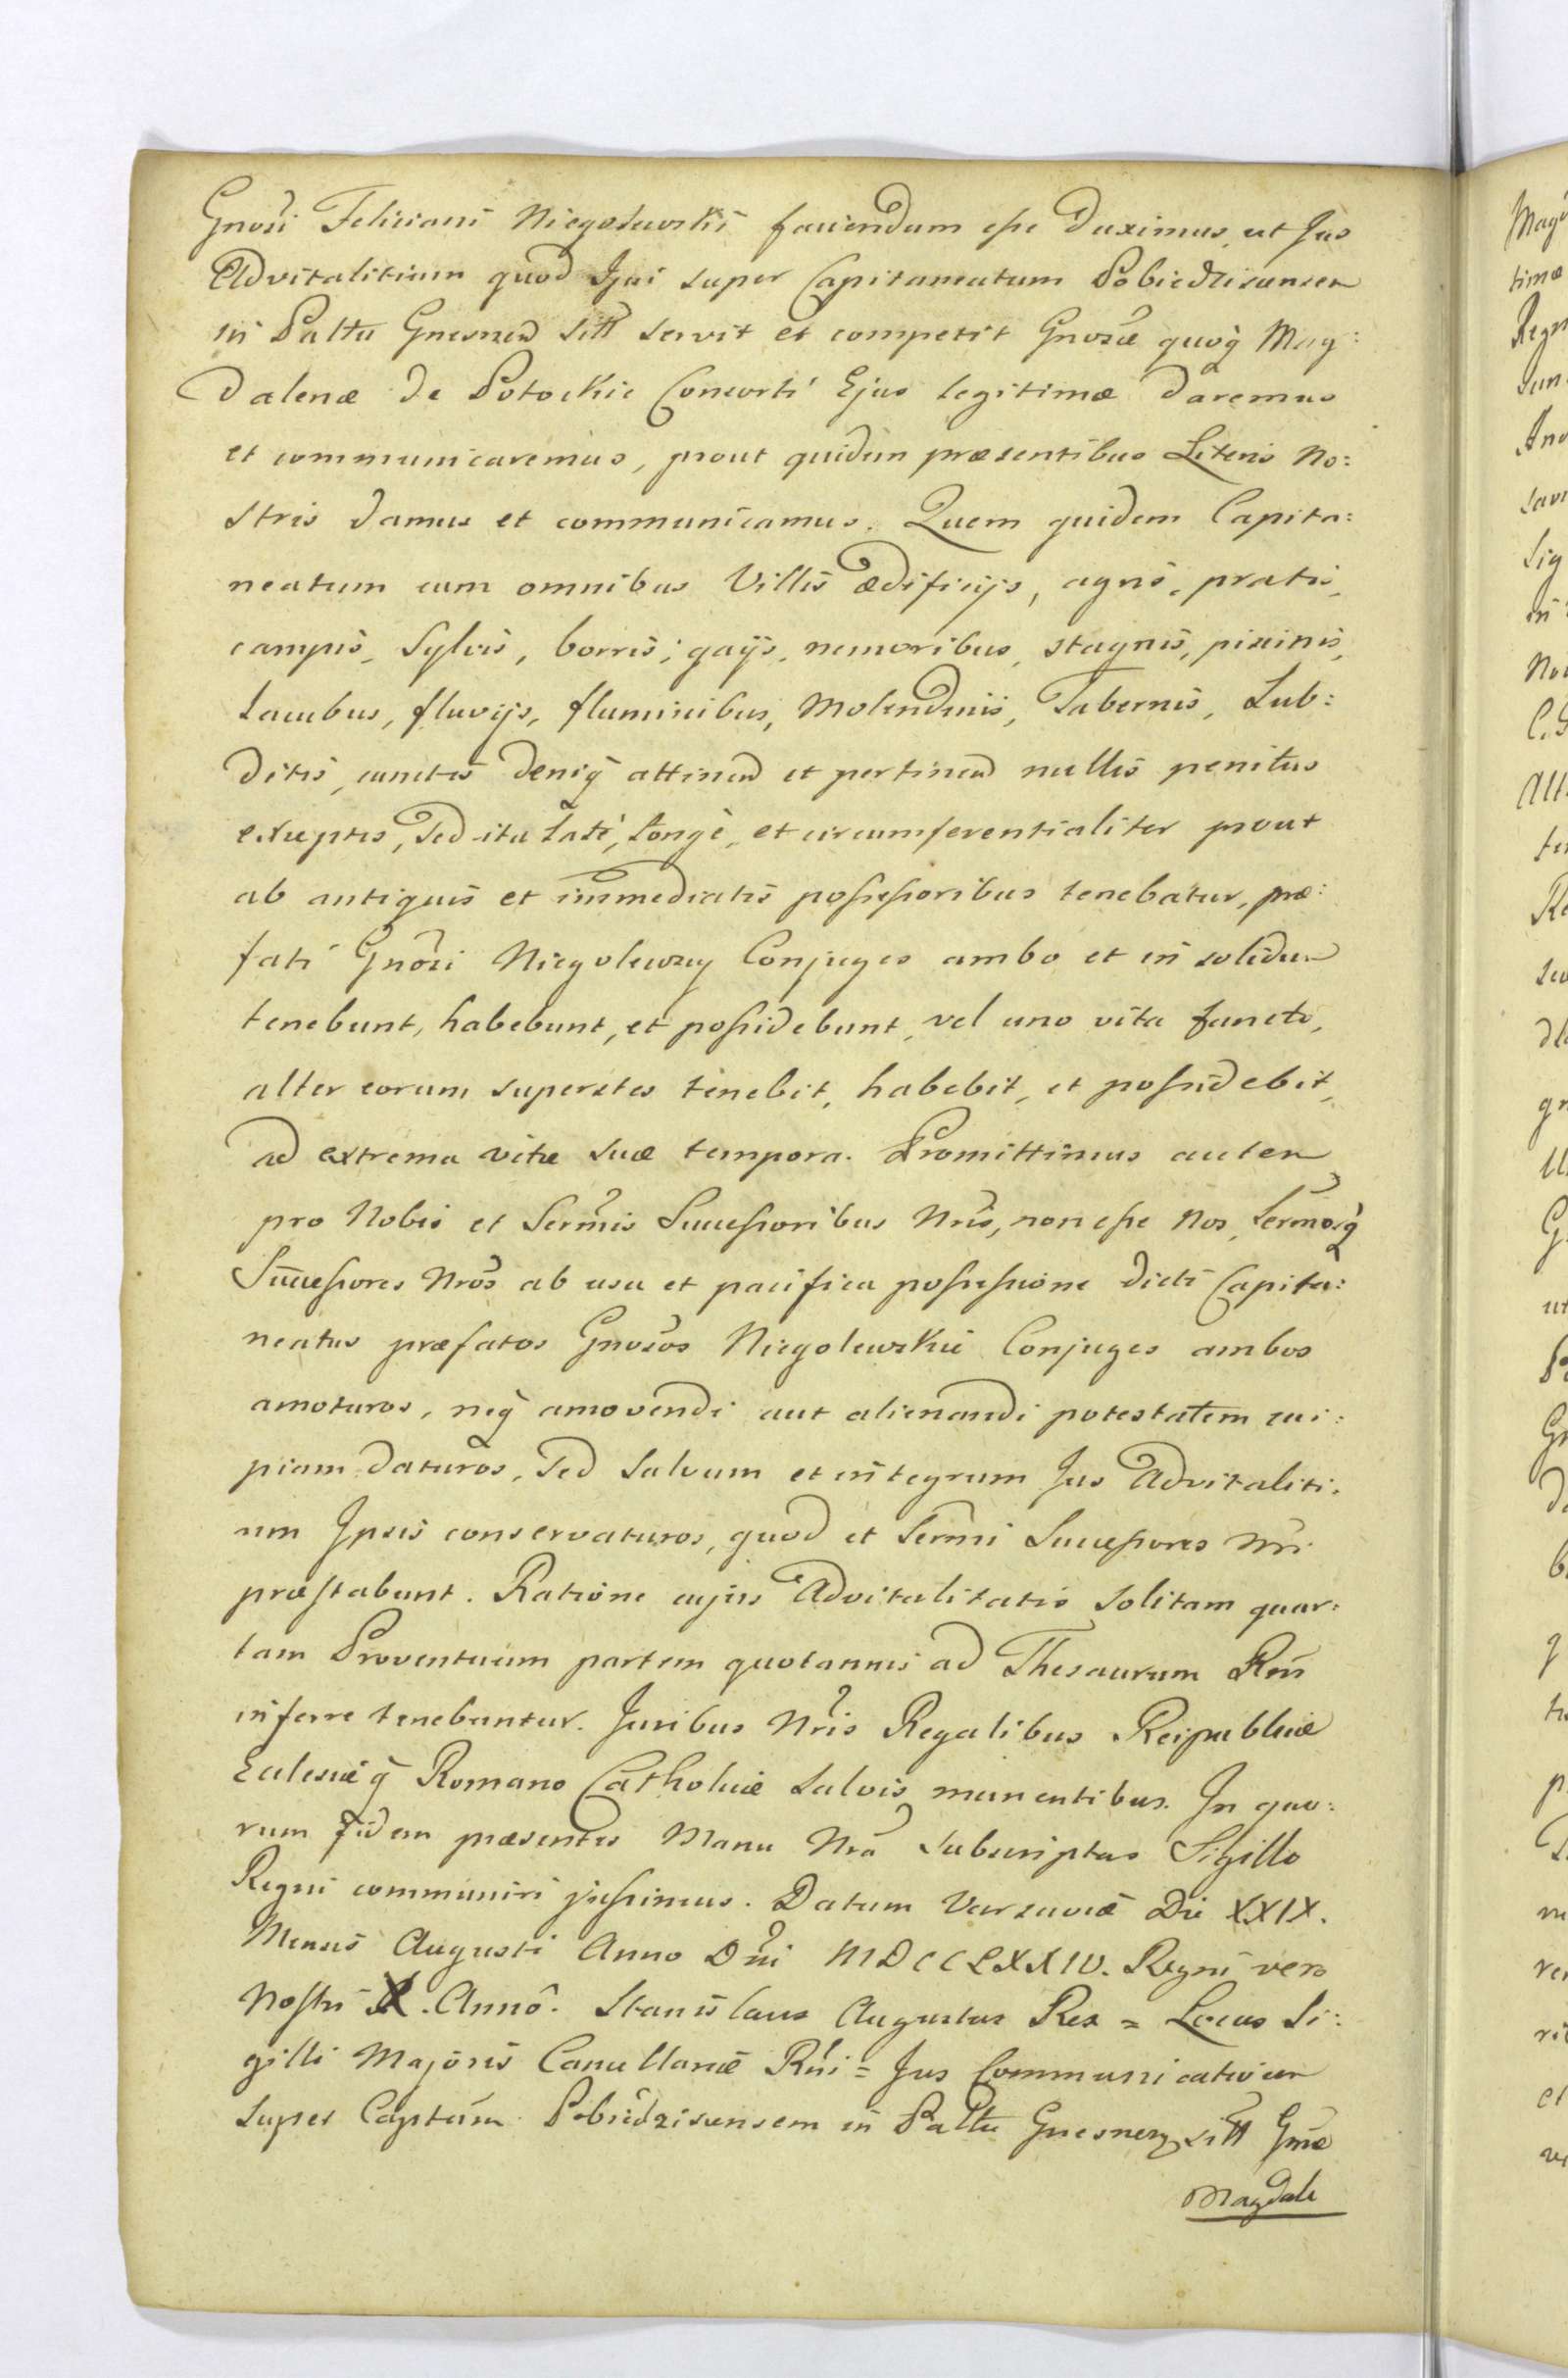 Gnosi Feliciani Niegolewski faciendum esse duximus, ut Jus
Advitalitium quod Ipsi super Capitaneatum Pobiedziscensem
in Palttu Gnesnen sitt servit et competit Gnosæ quoq Mag:
dalenæ de Potockie Consorti Ejus legitimæ daremus
et communicaremus, prout quidem præsentibus Literis No:
stris damus et communicamus. Quem quidem Capita:
neatum cum omnibus Villis ædificijs, agris, pratis,
campis, Sylvis, borris, gaijs, nemoribus, stagnis, piscinis,
Lacubus, fluvijs, fluminibus, Molendinis, Tabernis, Sub:
ditis, cunctis deniq attinen et pertinen nullis penitus
exceptis, Sed ita latè, longè, et circumferentialiter prout
ab antiquis et immediatis possessoribus tenebatur, præ:
fati Gnosi Niegolewscy Conjuges ambo et in solidum
tenebunt, habebunt, et possidebunt, vel uno vita functo,
alter eorum superstes tenebit, habebit, et possidebit,
ad extrema vitæ suæ tempora. Promittimus autem
pro Nobis et Sermis Successoribus Nris, non esse Nos, Sermosq
Successores Nros ab usu et pacifica possessione dicti Capita:
neatus præfatos Gnosos Niegolewskie Conjuges ambos
amoturos, neq amovendi aut alienandi potestatem cui:
piam daturos, Sed Salvum et integrum Jus Advitaliti:
um Ipsis conservaturos, quod et Sermi Successores Nri
præstabunt. Ratione cujus Advitalitatis Solitam quar:
tam Proventuum partem quotannis ad Thesaurum Rni
inferre tenebuntur. Juribus Nris Regalibus Reipublicæ
Ecclesiæq Romano Catholicæ Salvis manentibus. In quo:
rum fidem præsentes Manu Nra Subscriptas Sigillo
Regni communiri jussimus. Datum Varsaviæ Die XXIX.
Mensis Augusti Anno Dni MDCCLXXIV. Regni vero
Nostri X. Anno. Stanislaus Augustus Rex = Locus Si:
gilli Majoris Cancellariæ Rni = Jus Communicativum
super Captum Pobiedziscensem in Palttu Gnesnen sitt Gnæ
Magdale